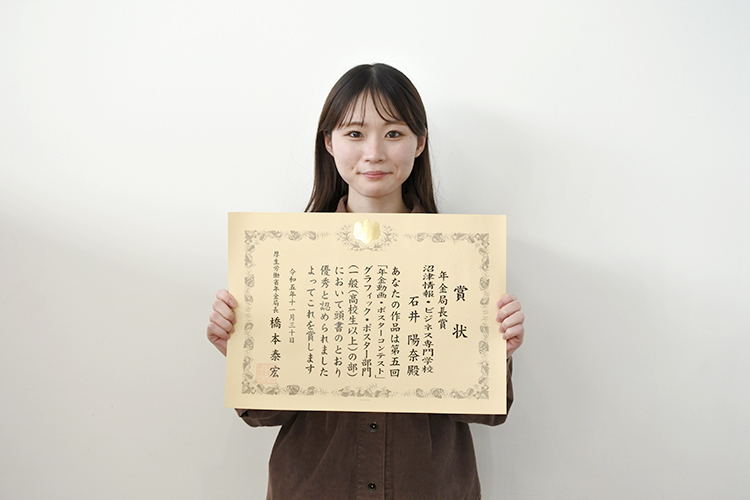 賞状
年金局長賞
沼津情報・ビジネス専門学校
石井 陽奈殿
あなたの作品は第五回
「年金動画・ポスターコンテスト」
グラフィック・ポスター部門
(一般(高校生以上)の部)
において頭書のとおり
優秀と認められました
よってこれを賞します
令和五年十一月三十日
厚生労働省年金局長 橋本泰宏